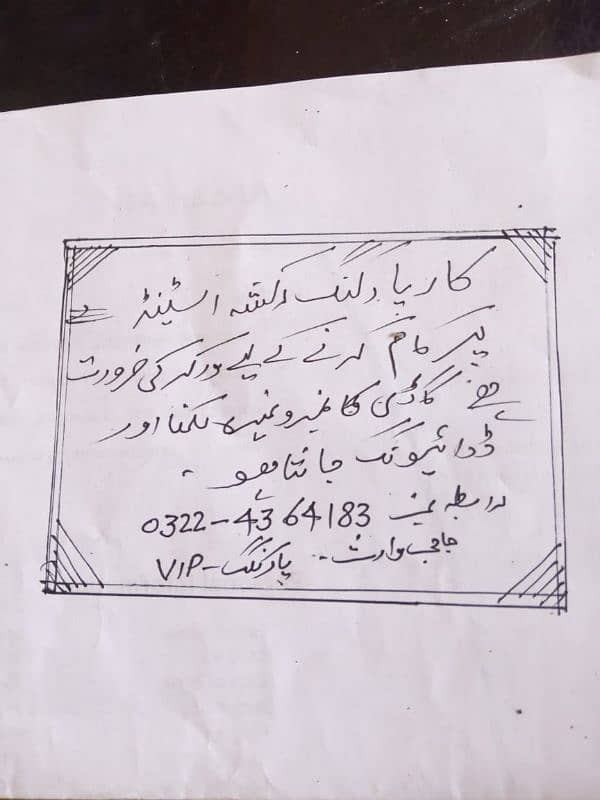 کار پارکنگ رکشہ اسٹینڈ
پر کام کرنے کے لیے ورکر کی ضرورت
ہے گاڑی کا نمبر وغیرہ لکھنا اور
ڈرائیونگ جانتا ہو۔
رابطہ نمبر 0322-4364183
حاجی وارث۔ پارکنگ-VIP